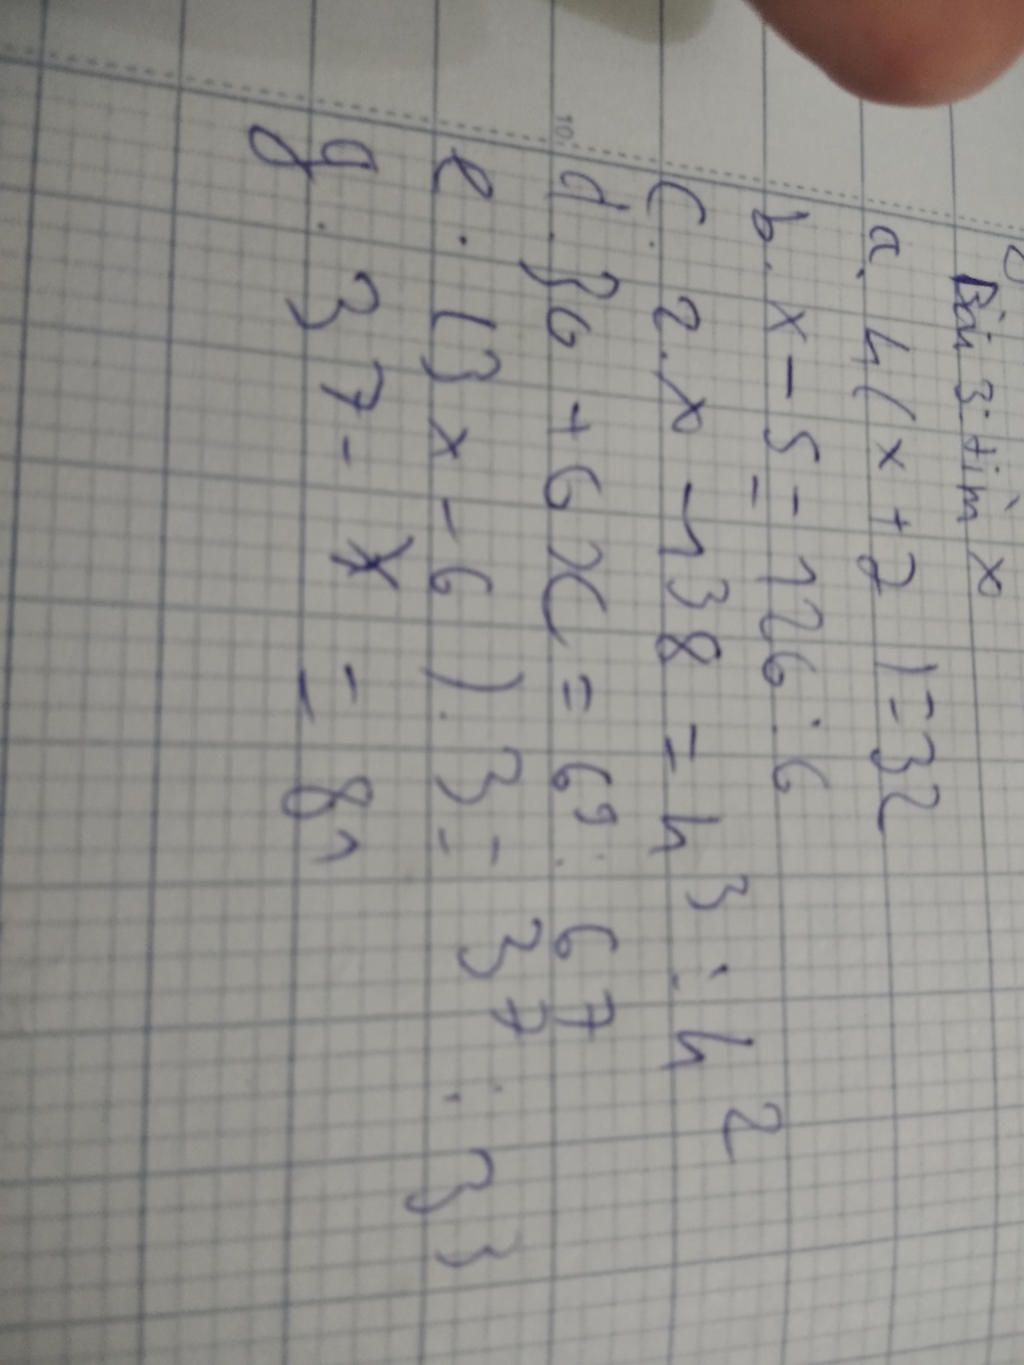 Bài 3: tìm x
a. 4(x+2)=32
b. x-5=126:6
c. 2.x-138=4³:4²
d. 36+6x=69:67
e. (3x-6).3=37:33
g. 37-x=81